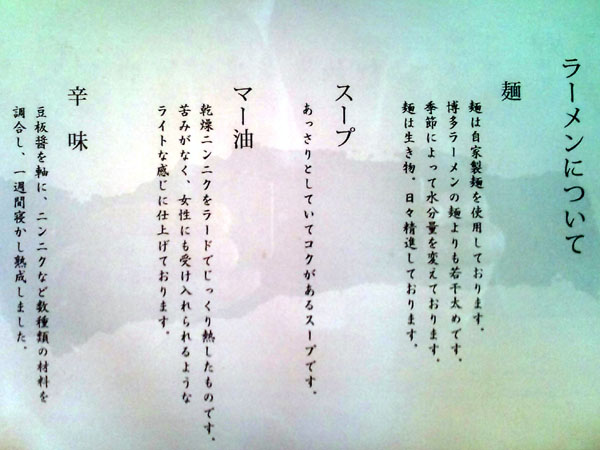 ラーメンについて
麺
麺は自家製麺を使用しております。
博多ラーメンの麺よりも若干太めです。
季節によって水分量を変えております。
麺は生き物、日々精進しております。
スープ
あっさりとしていてコクがあるスープです。
マー油
乾燥ニンニクをラードでじっくり熱したものです。
苦みがなく、女性にも受け入れられるような
ライトな感じに仕上げております。
辛味
豆板醤を軸に、ニンニクなど数種類の材料を
調合し、一週間寝かし熟成しました。